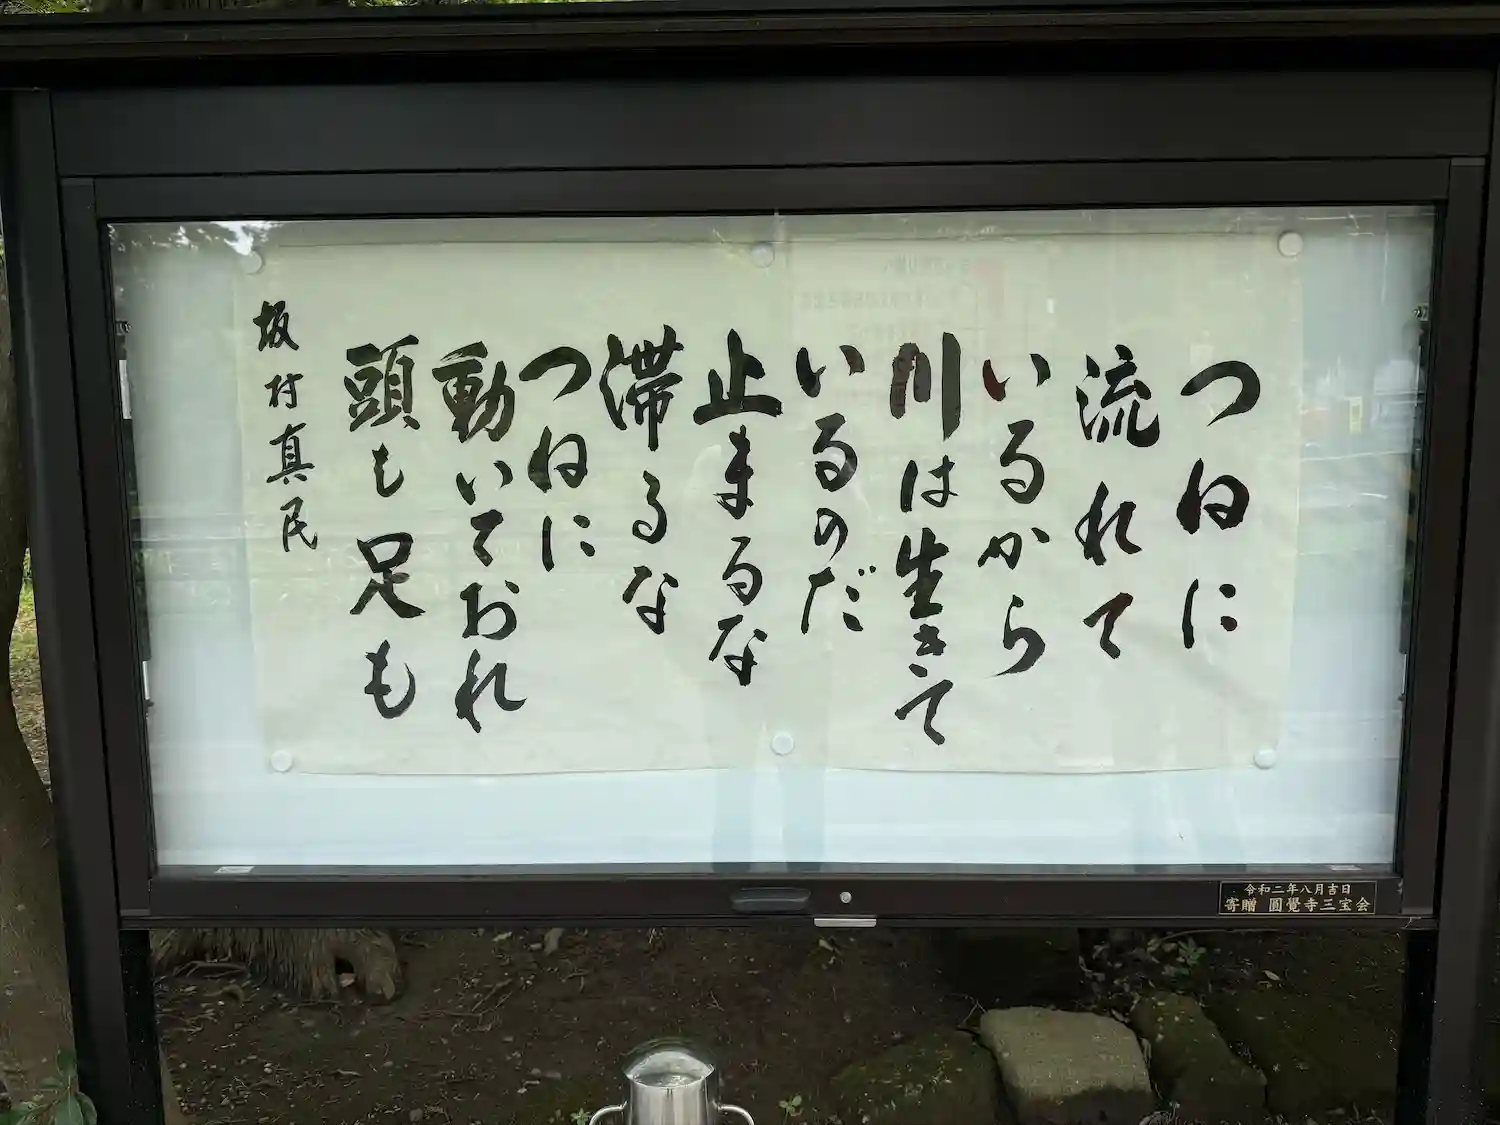 つねに
流れて
いるから
川は生きて
いるのだ
止まるな
滞るな
つねに
動いておれ
頭も足も
坂村真民
令和二年八月吉日
寄贈 圓覺寺三宝会